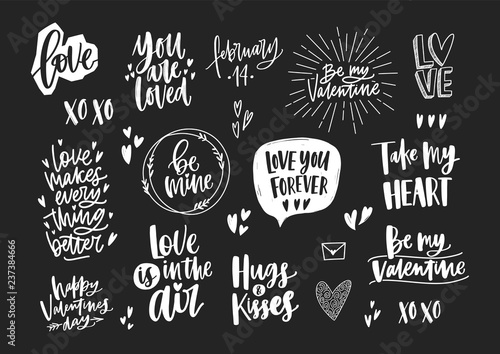 love
you
are
loved
february
14.
Be my
Valentine
LOVE
XO XO
love
makes
every
thing
better
be
mine
LOVE YOU
FOREVER
Take My
HEART
Happy
Valentines
day
Love
is in the
air
Hugs
& Kisses
Be my
Valentine
XO XO
Adobe Stock | #237384666